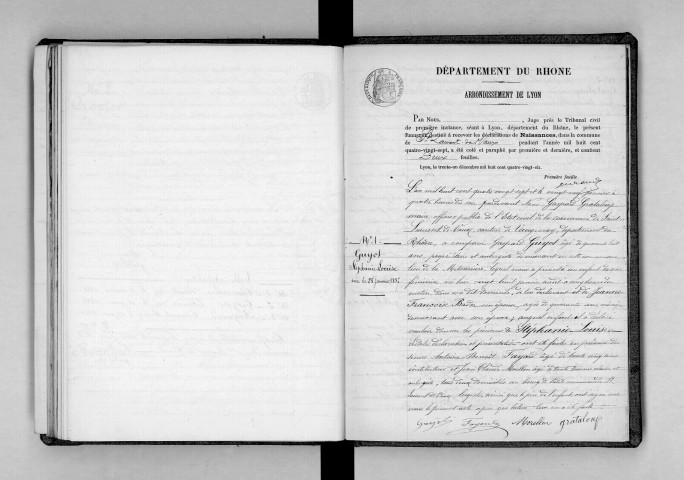 DÉPARTEMENT DU RHONE
ARRONDISSEMENT DE LYON
PAR NOUS, , Juge près le Tribunal civil
de première instance, séant à Lyon, département du Rhône, le présent
Registre destiné à recevoir les déclarations de Naissances, dans la commune
de St Laurent de Vaux pendant l'année mil huit cent
quatre-vingt-sept, a été coté et paraphé par première et dernière, et contient
Deux feuilles.
Lyon, le trente-un décembre mil huit cent quatre-vingt-six.
Première feuille
L'an mil huit cent quatre vingt sept et le vingt neuf janvier à
quatre heures du soir pardevant Nous Gaspard Grataloup
maire, officier public de l'Etat civil de la commune de Saint
Laurent de Vaux, canton de Vaugneray, département du
Rhône, a comparu Gaspard Guyot âgé de quarante huit
ans, propriétaire et demeurant en cette commune
lieu de la lequel nous a présenté un enfant du sexe
féminin, né hier vingt huit janvier
déclarant et de Jeanne
Françoise son épouse, âgée de quarante ans
demeurant avec son époux; auquel enfant il a déclaré
vouloir donner les prénoms de Stéphanie Louise
Lesdites déclaration et présentation ont été faites en présence des
sieurs Antoine Benoît Fayard âgé de trente cinq ans
instituteur et Jean Claude Morellon âgé de trente
tous deux domiciliés au bourg de
Laurent de Vaux, lesquels ainsi que le père de l'enfant ont signé avec
nous le présent acte après que lecture leur en a été faite
N° 1
Guyot
Stéphanie Louise
née le 28 janvier 1887
Guyot Fayard Morellon Grataloup